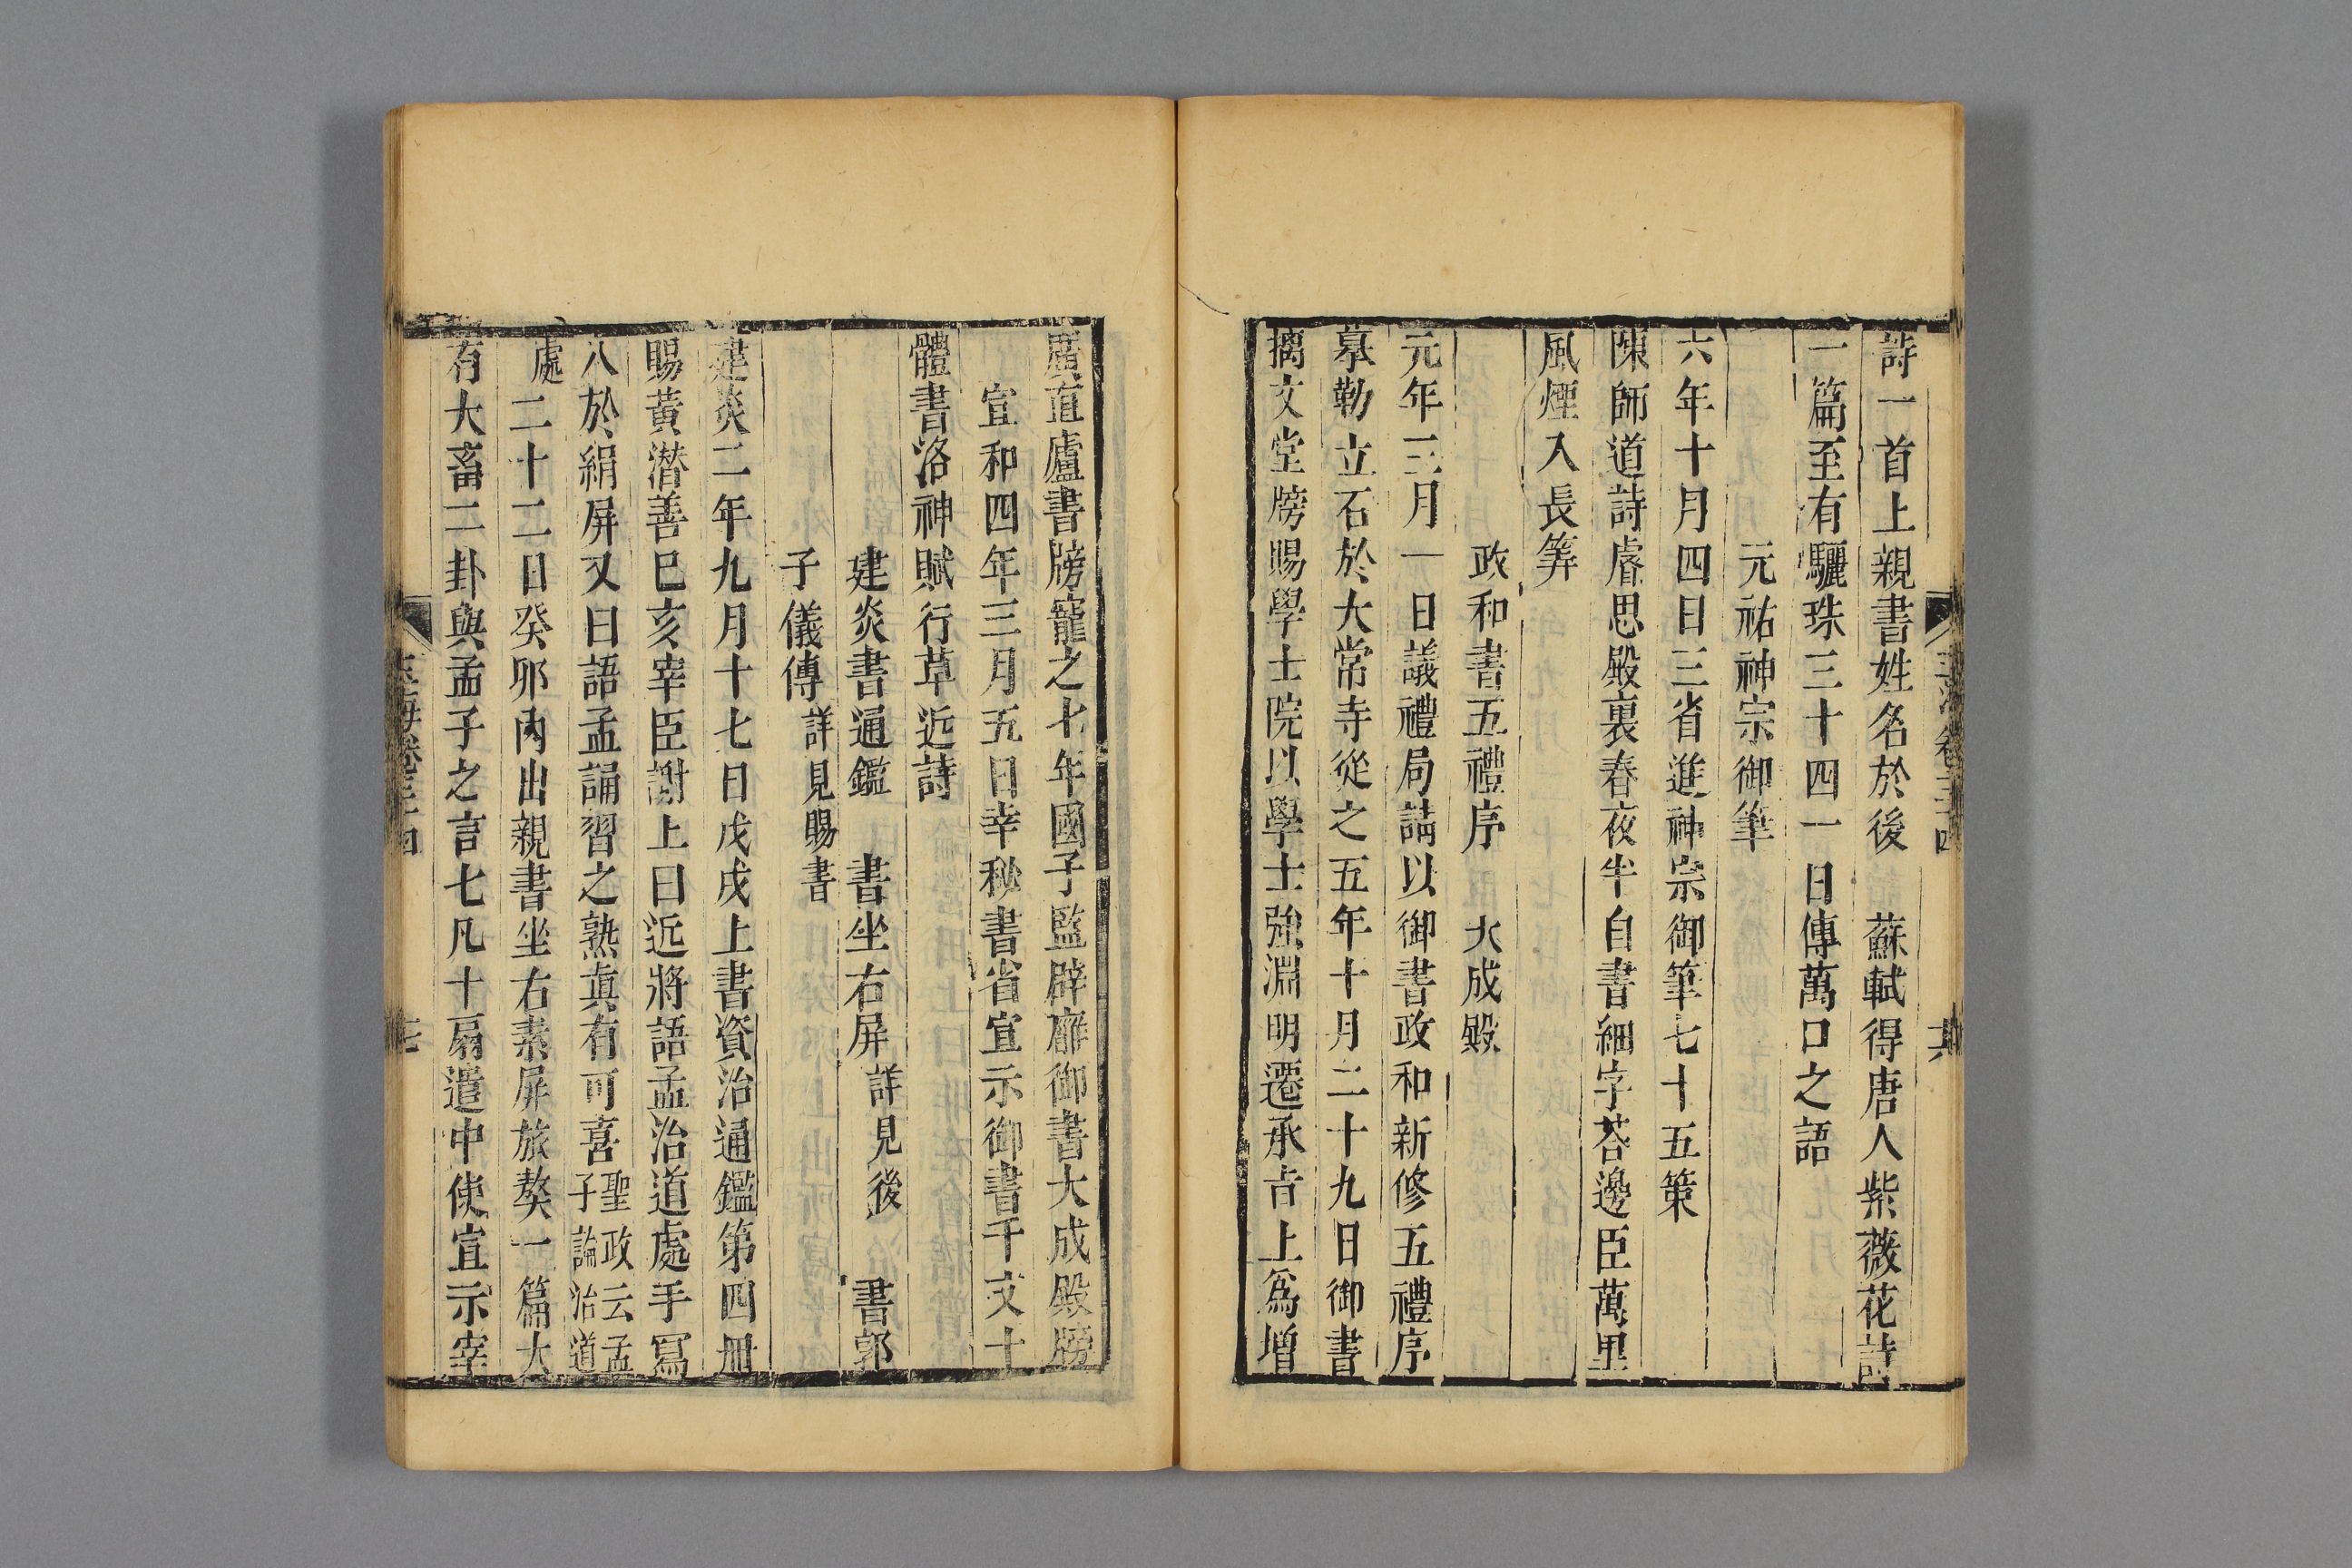 詩一首上親書姓名於後　蘇軾得唐人紫薇花詩
一篇至有驪珠三十四一日傳萬口之語
元祐神宗御筆
六年十月四日三省進神宗御筆七十五策
陳師道詩睿思殿裏春夜半自書細字荅邊臣萬里
風煙入長筭
政和書五禮序　大成殿
元年三月一日議禮局請以御書政和新修五禮序
摹勒立石於大常寺從之五年十月二十九日御書
摛文堂牓賜學士院以學士強淵明遷承旨上爲增
廣直廬書牓寵之七年國子監辟廱御書大成殿牓
宣和四年三月五日幸秘書省宣示御書千文十
體書洛神賦行草近詩
建炎書通鑑　書坐右屏詳見後　書郭
子儀傳詳見賜書
建炎二年九月十七日戊戌上書資治通鑑第四冊
賜黃潛善巳亥宰臣謝上曰近將語孟治道處手寫
入於絹屏又曰語孟誦習之熟眞有可喜聖政云孟
子論治道
處二十二日癸卯內出親書坐右素屏旅獒一篇大
有大畜二卦與孟子之言七凡十扇遣中使宣示宰
玉海卷三十四